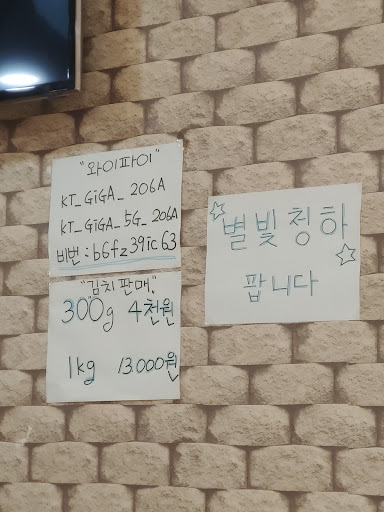 "와이파이"
KT_GiGA_ 206A
KT_GiGA_ 5G_ 206A
비번 : b6fz39ic63
"김치판매"
300g 4천원
1kg 13000원
별빛청하
팝니다